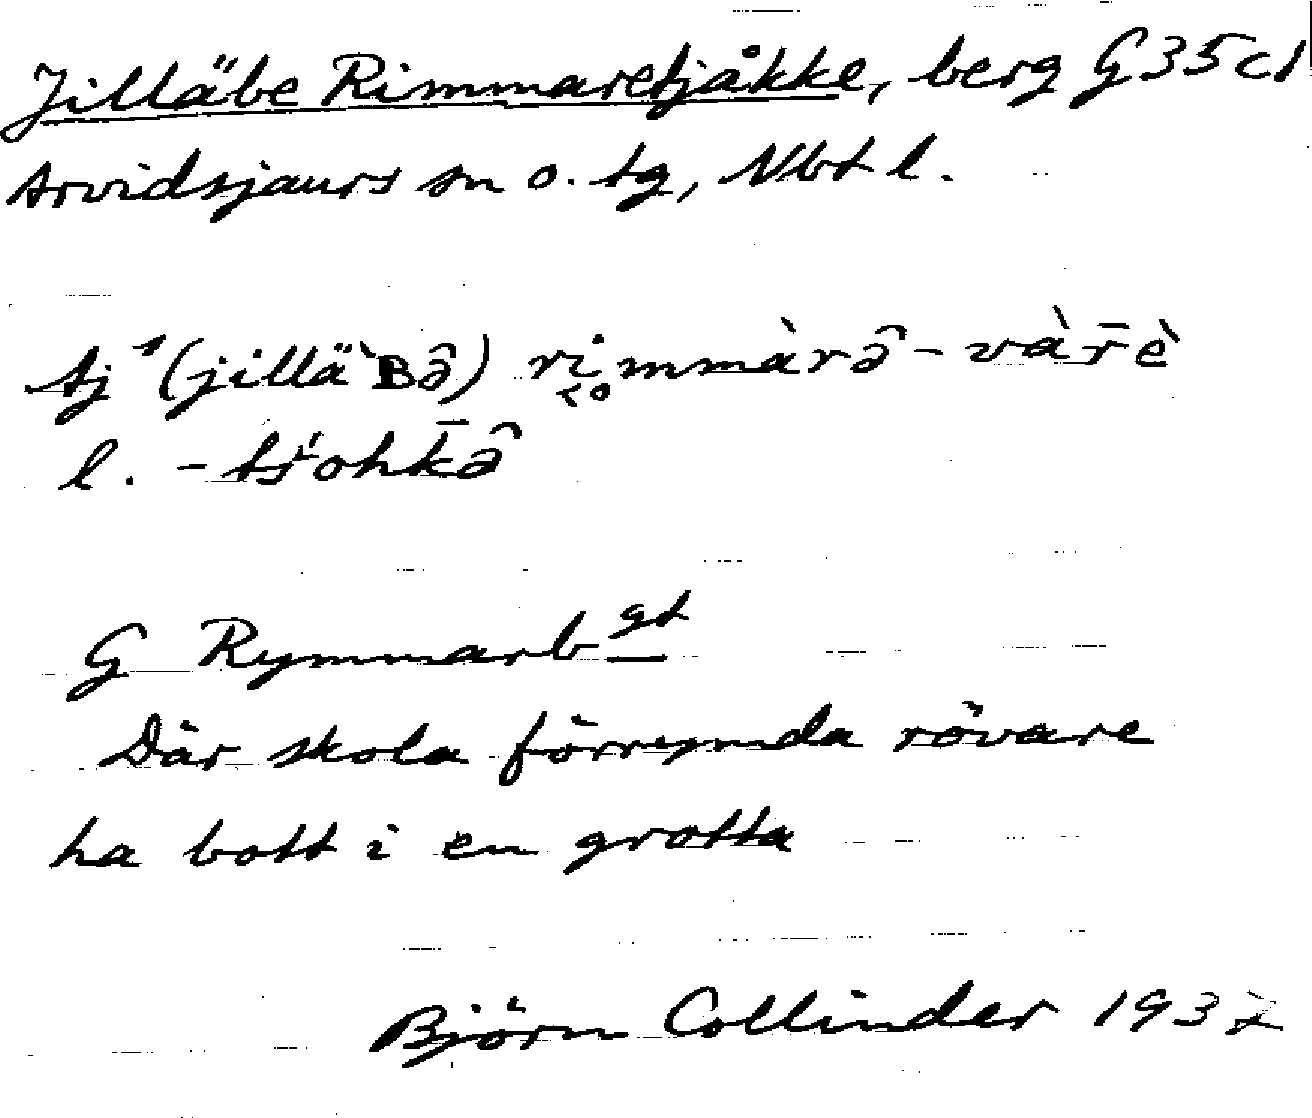 Jilläbe Rimmaretjåkke, berg G35cd
Arvidsjaurs sn o. tg, Nbt l.
tj¹ (jillä̀ʙâ) rimmàrâ - vàr̄è
l. - tś'ohk̄â
G Rymmarbgt
Där skola förrymda rövare
ha bott i en grotta
Björn Collinder 1937